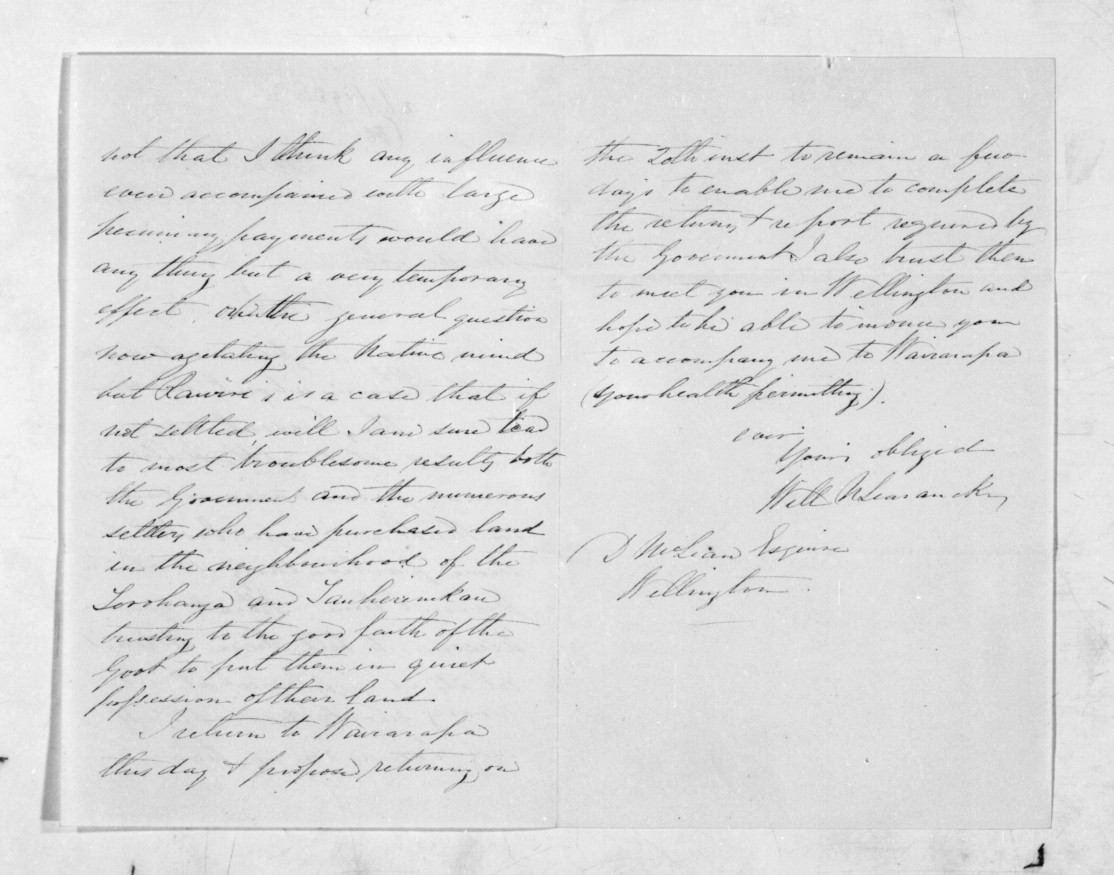 not that I think any influence
even accompanied with large
pecuniary payments would have
any thing but a very temporary
effect on the general question
now agitating the Native mind
but Rawiri's is a case that if
not settled, will I am sure lead
to most troublesome results both
the Government and the numerous
settlers who have purchased land
in the neighbourhood of the
Torohanga and Tauherenikau
trusting to the good faith of the
Govt to put them in quiet
possession of their land
I return to Wairarapa
this day & propose returning on
the 20th inst to remain a few
days to enable me to complete
the returns & report required by
the Goverment I also trust then
to meet you in Wellington and
hope to be able to induce you
to accompany me to Wairarapa
(your health permitting).
ever
Yours obliged
Will N Searancke
D McLean Esquire
Wellington.